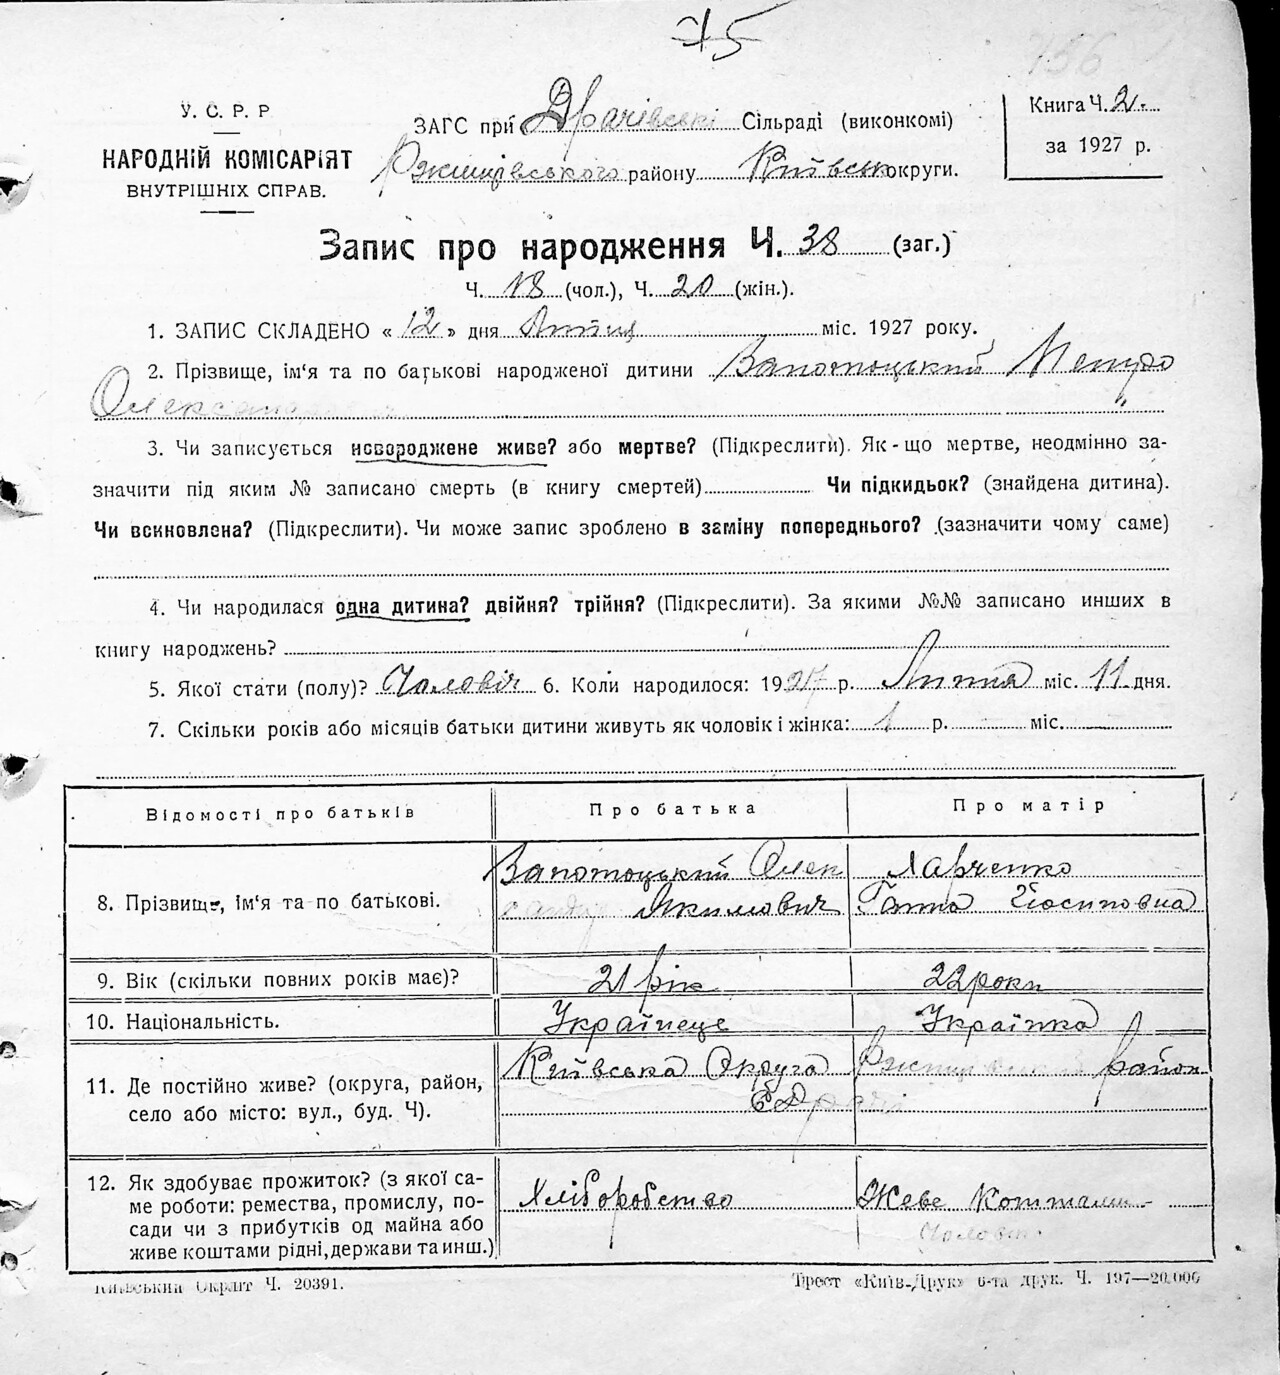 75
У. С. Р. Р
НАРОДНІЙ КОМІСАРІЯТ
ВНУТРІШНІХ СПРАВ.
ЗАГС при Драчівські Сільраді (виконкомі)
Ржищівського району Київськ округи.
Книга Ч. 2.
за 1927 р.
Запис про народження Ч. 38 (заг.)
Ч. 18 (чол.), Ч. 20 (жін.).
1. ЗАПИС СКЛАДЕНО « 12 » дня Липця міс. 1927 року.
2. Прізвище, ім‘я та по батькові народженої дитини Запотоцький Петро
3. Чи записується новороджене живе? або мертве? (Підкреслити). Як-що мертве, неодмінно за-
значити під яким № записано смерть (в книгу смертей) Чи підкидьок? (знайдена дитина).
Чи всиновлена? (Підкреслити). Чи може запис зроблено в заміну попереднього? (зазначити чому саме)
4. Чи народилася одна дитина? двійня? трійня? (Підкреслити). За якими №№ записано инших в
книгу народжень?
5. Якої стати (полу)? Чоловіч 6. Коли народилося: 1927 р. Липня міс. 11 дня.
7. Скільки років або місяців батьки дитини живуть як чоловік і жінка: 1 р. — міс.
Відомості про батьків Про батька Про матір
Запотоцький Олек Харченко
8. Прізвище, ім‘я та по батькові. сандр Якимович Ганна Йосиповна
9. Вік (скільки повних років має)? 21 рік 22 роки
10. Національність. Українець Українка
Київська Округа Ржищівський район
11. Де постійно живе? (округа, район,
село або місто: вул., буд. Ч).
12. Як здобуває прожиток? (з якої са- Хліборобство Жеве коштами
ме роботи: ремества, промислу, по- Чоловік
сади чи з прибутків од майна або
живе коштами рідні, держави та инш.)
Київський Окрліт Ч. 20391. Трест «Київ-Друк» 6-та друк. Ч. 197—20.000